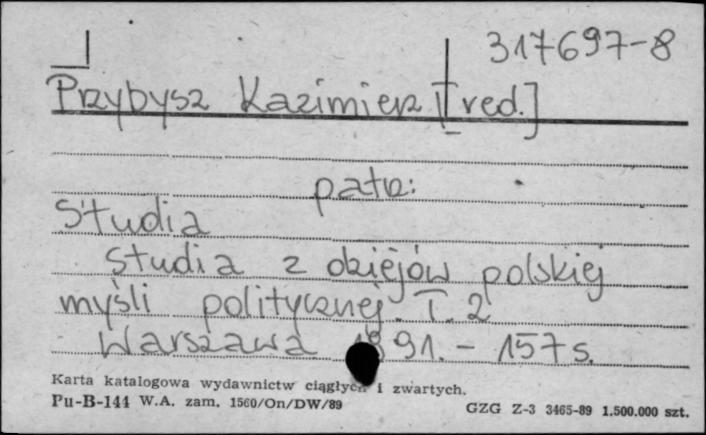 317697-8
Przybysz Kazimierz [red.]
patrz:
Studia
Studia z dziejów polskiej
myśli politycznej. T. 2
Warszawa 1991. - 157 s.
Karta katalogowa wydawnictw ciągłych i zwartych.
Pu-B-144 W.A. zam. 1560/On/DW/89
GZG Z-3 3465-89 1.500.000 szt.